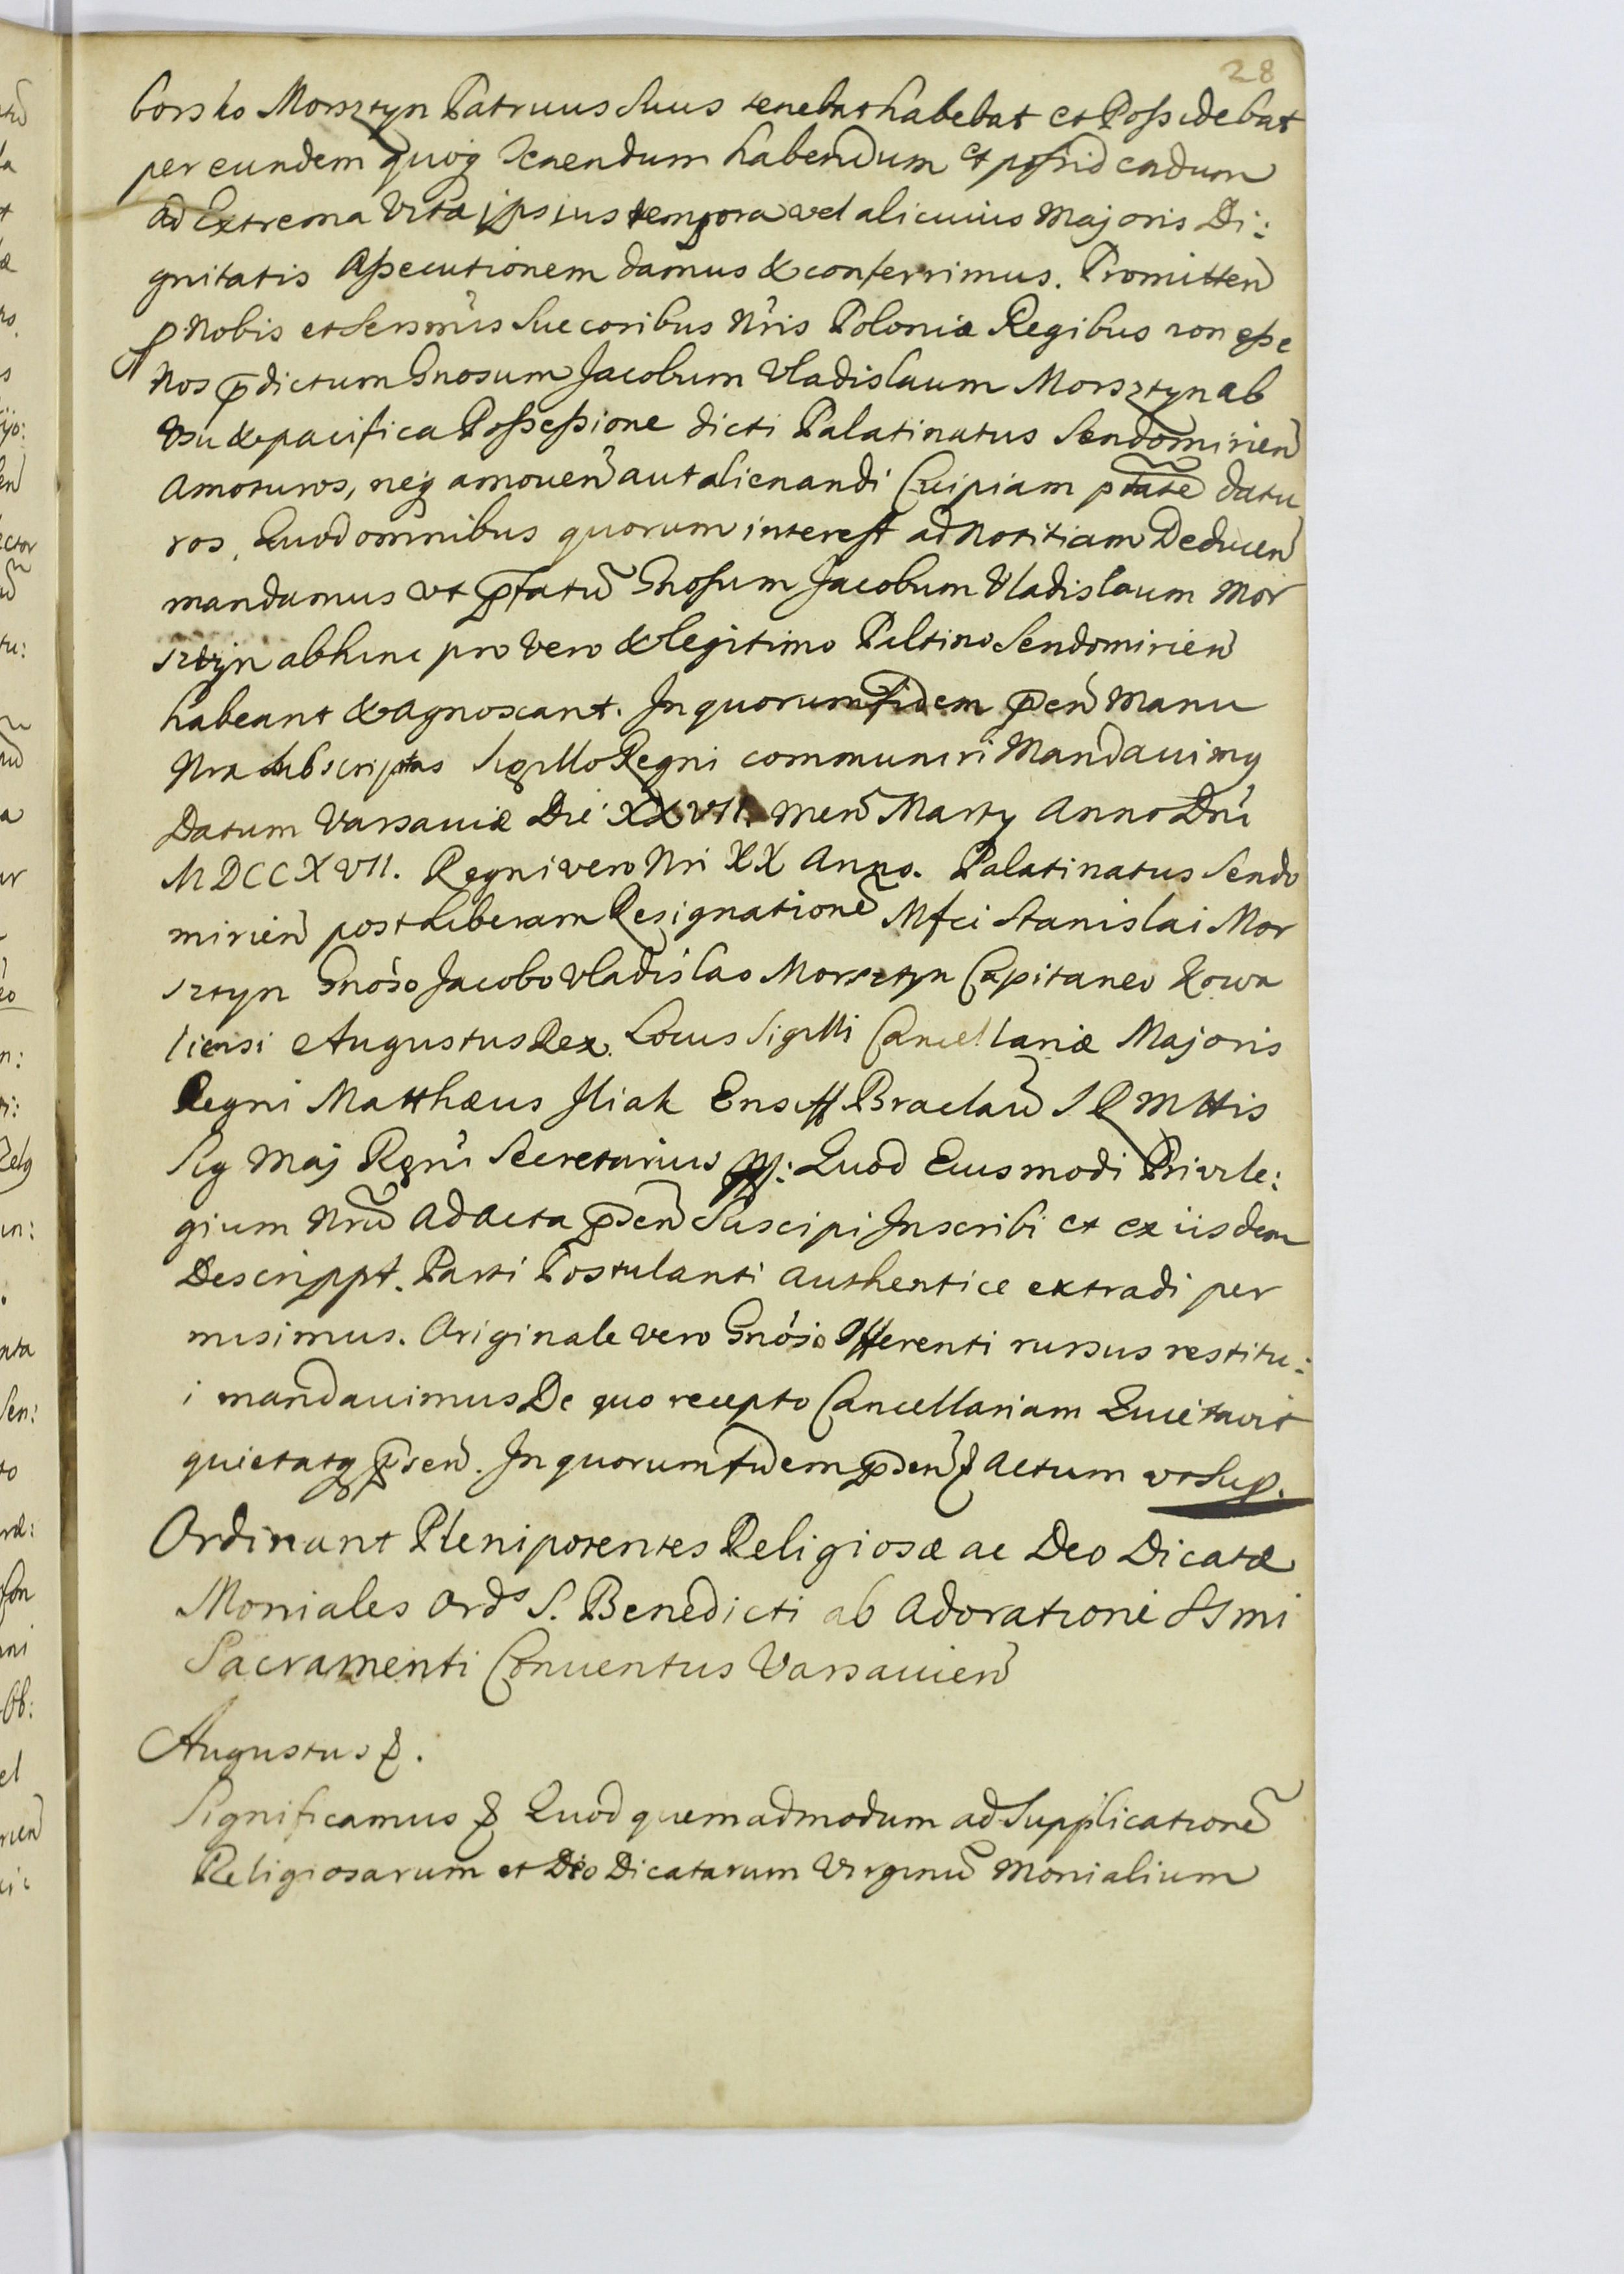 28
borsko Morsztyn Patruus Suus tenebat habebat et Possidebat
per eundem quoq Tenendum habendum et possidendum
ad Extrema Vitæ ipsius tempora vel alicuius Majoris Di:
gnitatis Assecutionem damus & conferrimus. Promitten
p Nobis et Sersmis Succoribus Nris Poloniæ Regibus non esse
Nos pdictum Gnosum Jacobum Vladislaum Morsztyn ab
Usu & pacifica Possessione dicti Palatinatus Sendomirien
Amoturos, neq amouen aut alienandi Cuipiam ptate datu
ros, Quod omnibus quorum interest ad Notitiam Deducen
mandamus vt pfatu Gnosum Jacobum Vladislaum Mor
sztyn abhinc pro Vero & legitimo Paltino Sendomirien
habeant & agnoscant. In quorum fidem pen Manu
Nra Subscriptas Sigillo Regni communiri Mandauimg
Datum Varsauiæ Die XXVII. men Marty Anno Dni
MDCCXVII. Regni vero Nri XX Anno. Palatinatus Sendo
mirien post Liberam Resignatione Mfci Stanislai Mor
sztyn Gnoso Jacobo Vladislao Morsztyn Capitaneo Kowa
liensi Augustus Rex. Locus Sigilli Cancellariæ Majoris
Regni Matthæus Iliak Ensiff Braclau S R Mttis
Sig Maj Regni Secretarius mp: Quod Eiusmodi Privile:
gium Nru ad Acta psen Suscipi Inscribi et ex iisdem
Descrippt. Parti Postulanti authentice extradi per
misimus. Originale vero Gnoso Offerenti rursus restitu:
i mandauimus De quo recepto Cancellariam Quietavit
quietatq psen. In quorum fidem psen & Actum vt Sup.
Ordinant Plenipotentes Religiosæ ac Deo Dicatæ
Moniales Ords S. Benedicti ab Adoratione SSmi
Sacramenti Conuentus Varsauien
Augustus &.
Significamus & Quod quemadmodum ad Supplicatione
Religiosarum et Deo Dicatarum Virginu Monialium